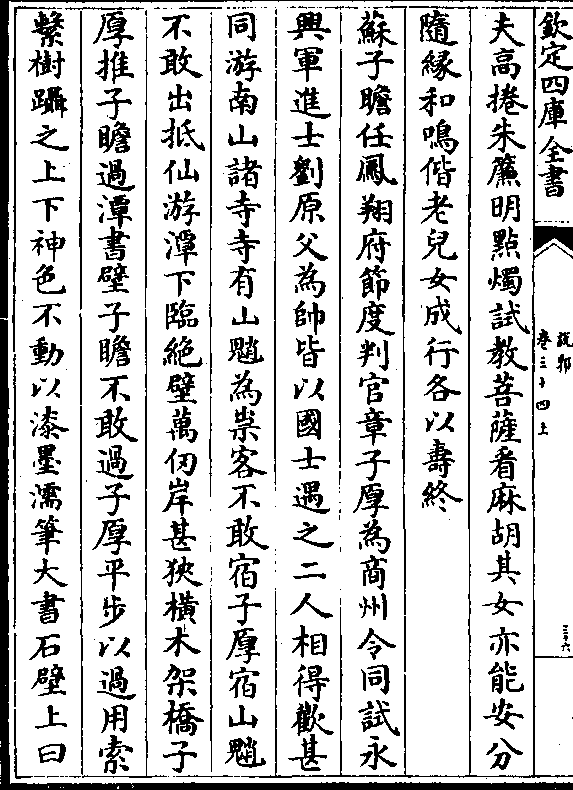 欽定四庫全書
說郛
卷三十四上
三十六
夫高捲朱簾明點燭試教菩薩看麻胡其女亦能安分
隨緣和鳴偕老兒女成行各以壽終
蘇子瞻任鳳翔府節度判官章子厚為商州令同試永
興軍進士劉原父為帥皆以國士遇之二人相得歡甚
同游南山諸寺寺有山魈為祟客不敢宿子厚宿山魈
不敢出抵仙游潭下臨絶壁萬仞岸甚狹橫木架橋子
厚推子瞻過潭書壁子瞻不敢過子厚平步以過用索
繫樹躡之上下神色不動以漆墨濡筆大書石壁上曰